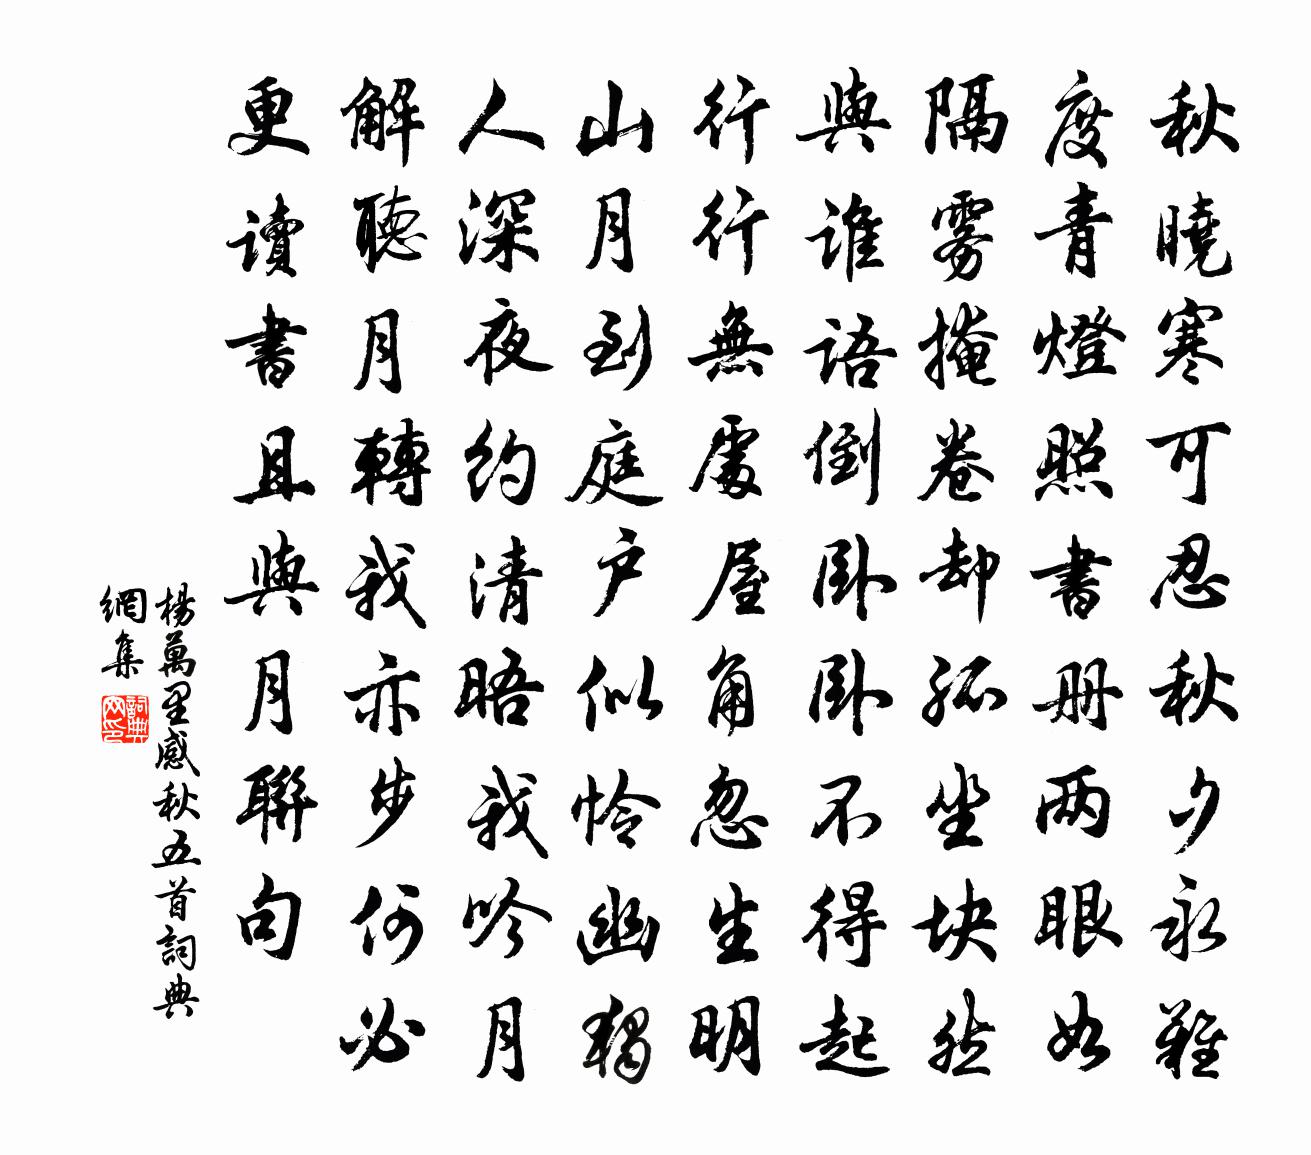 秋曉寒可忍秋夕永難
度青燈照書册两眼如
隔雾掩卷却孤坐块然
與谁語倒卧卧不得起
行行無處屋角忽生明
山月到庭户似怜幽獨
人深夜約清晤我吟月
解聽月轉我亦步何必
更讀書且與月聯句
楊萬里感秋五首詞典
網集
詞典
网印